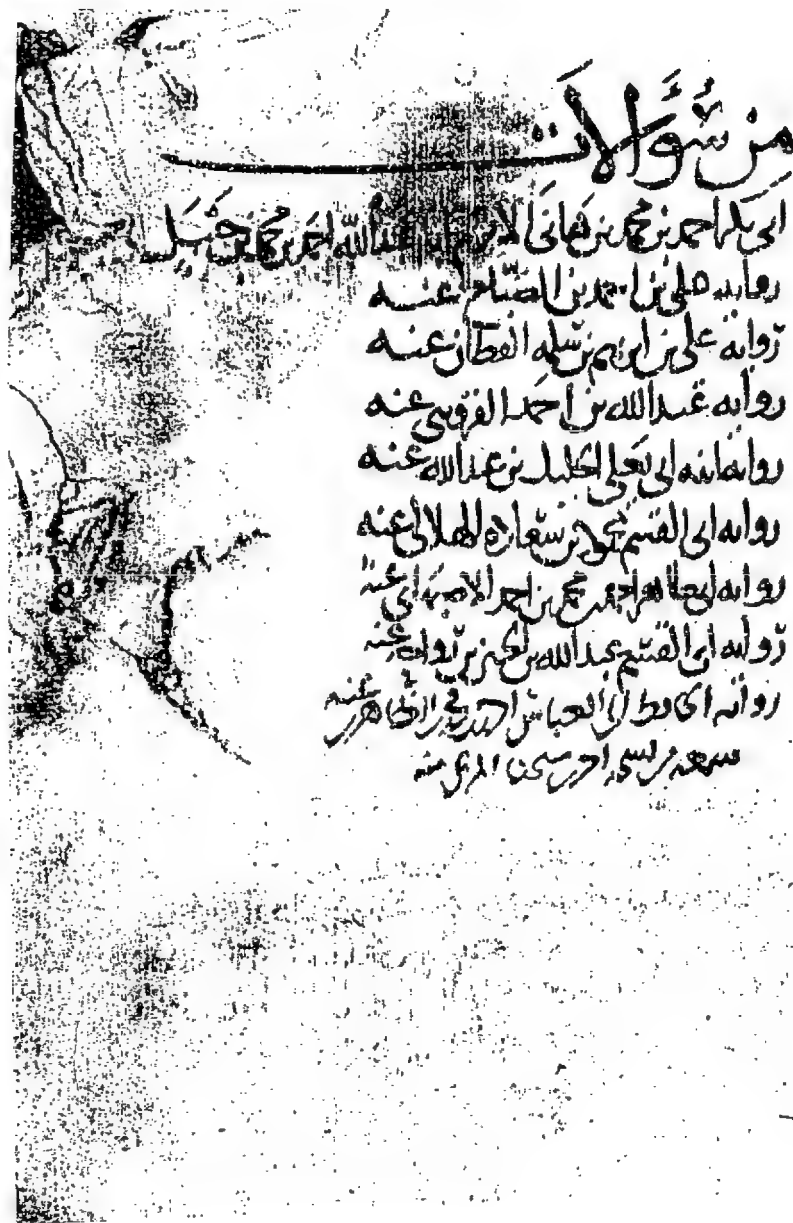 مِن سُؤَالات
ابي بكر احمد بن محمد بن هانئ الاثرم عبد الله احمد بن محمد بن حنبل
رواية علي بن احمد بن الصباح عنه
رواية على بن ابرهيم بن سلمه القطان عنه
رواية عبد الله بن احمد القزويني عنه
رواية ابنه ابى يعلى الخليل بن عبد الله عنه
رواية ابى القسم بن سعاده الهلالى عنه
رواية ابى محمد بن احمد الاصبهاني عنه
رواية ابى القسم عبد الله بن الحسين بن رواحه عنه
رواية الحافظ ابى العباس احمد بن الظاهرى عنه
سمعه احمد عنه